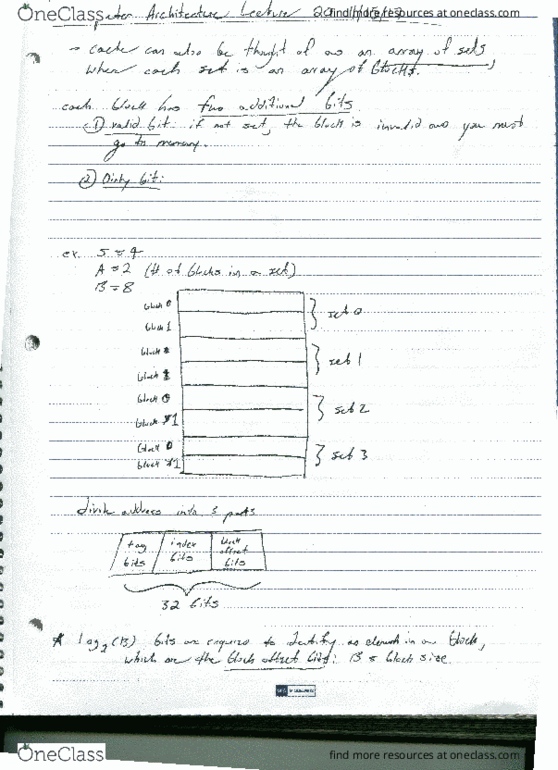 OneClass
find more resources at oneclass.com
Architecture Lecture 20
→ cache can also be thought of as an array of sets,
when each set is an array of blocks.
each block has two additional bits
① valid bit: if not set, the block is invalid and you must
go to memory.
② Dirty bit:
ex. S = 4
A = 2 (# of blocks in a set)
B = 8
block 0
block 1
} set 0
block
block
} set 1
block 0
block 1
} set 2
block 0
block 1
} set 3
divide address into 3 parts
tag bits
index bits
block offset bits
32 bits
* log₂(B) bits are required to identify an element in a block,
which are the block offset bits. B = block size
OneClass
find more resources at oneclass.com